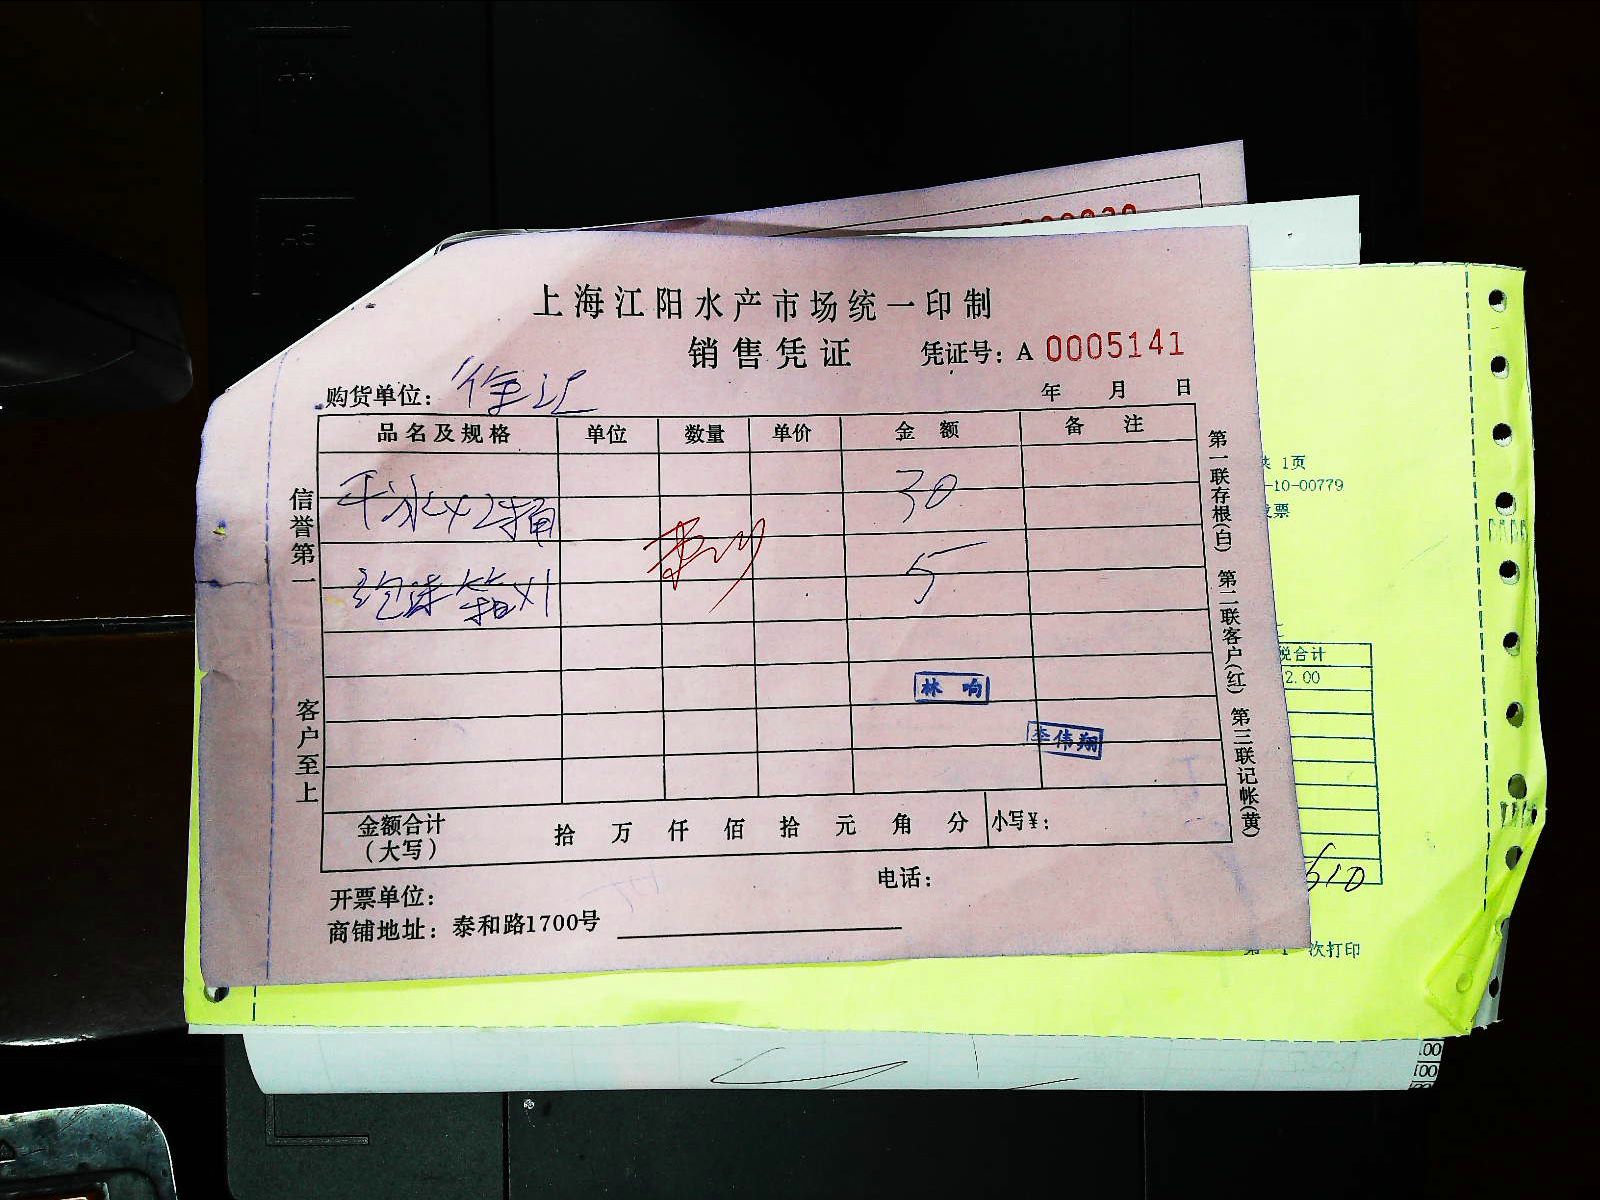 上海江阳水产市场统一印制
销售凭证 凭证号：A 0005141
购货单位：徐汇 年 月 日
品名及规格 单位 数量 单价 金额 备注
干冰×2桶 30
泡沫箱×1 5
林响
李伟翔
金额合计（大写） 拾 万 仟 佰 拾 元 角 分 小写￥：
开票单位： 电话：
商铺地址：泰和路1700号
信誉第一 客户至上
第一联存根(白) 第二联客户(红) 第三联记帐(黄)
共 1页
-10-00779
发票
税合计
2.00
610
第 1 次打印
.00